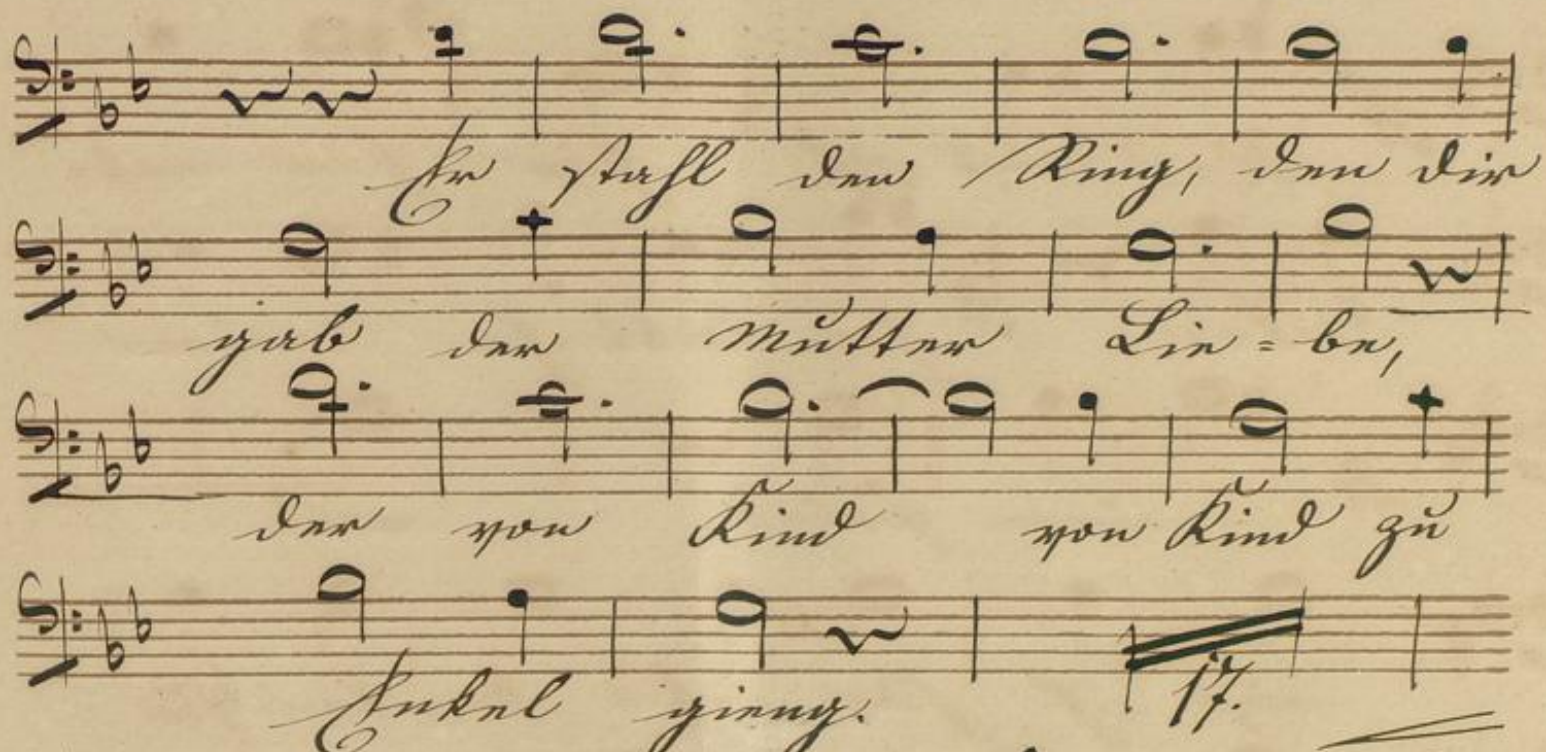 Er stahl den Ring, den dir
gab der Mutter Lie=be,
der von Kind von Kind zu
Enkel gieng.
17.